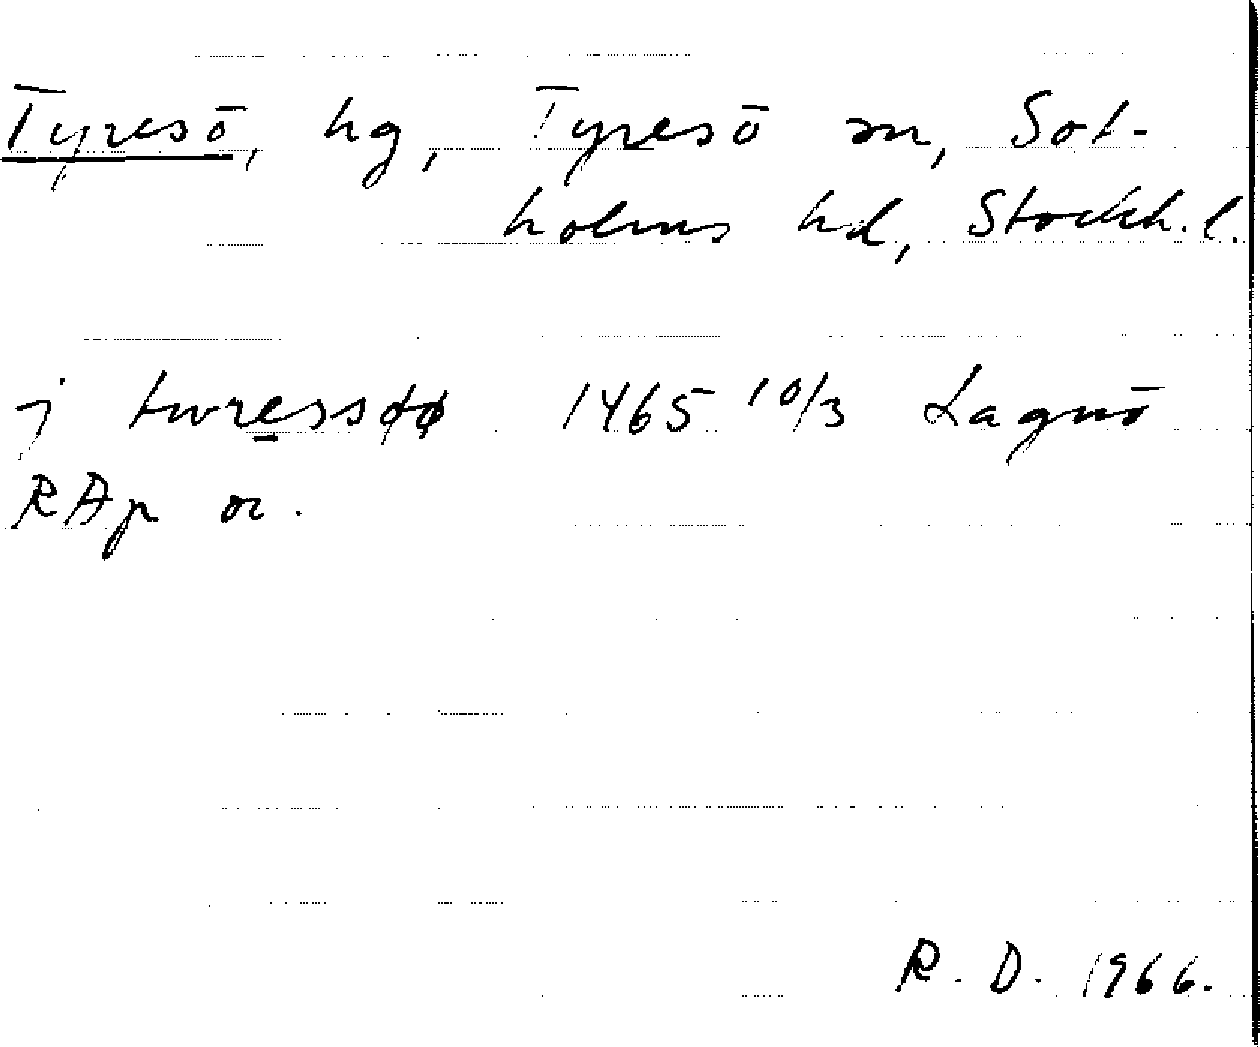 Tyresö, hg, Tyresö sn, Sot-
holms hd, Stockh. l.
j twressøø 1465 10/3 Lagnö
RAp or.
R. D. 1966.